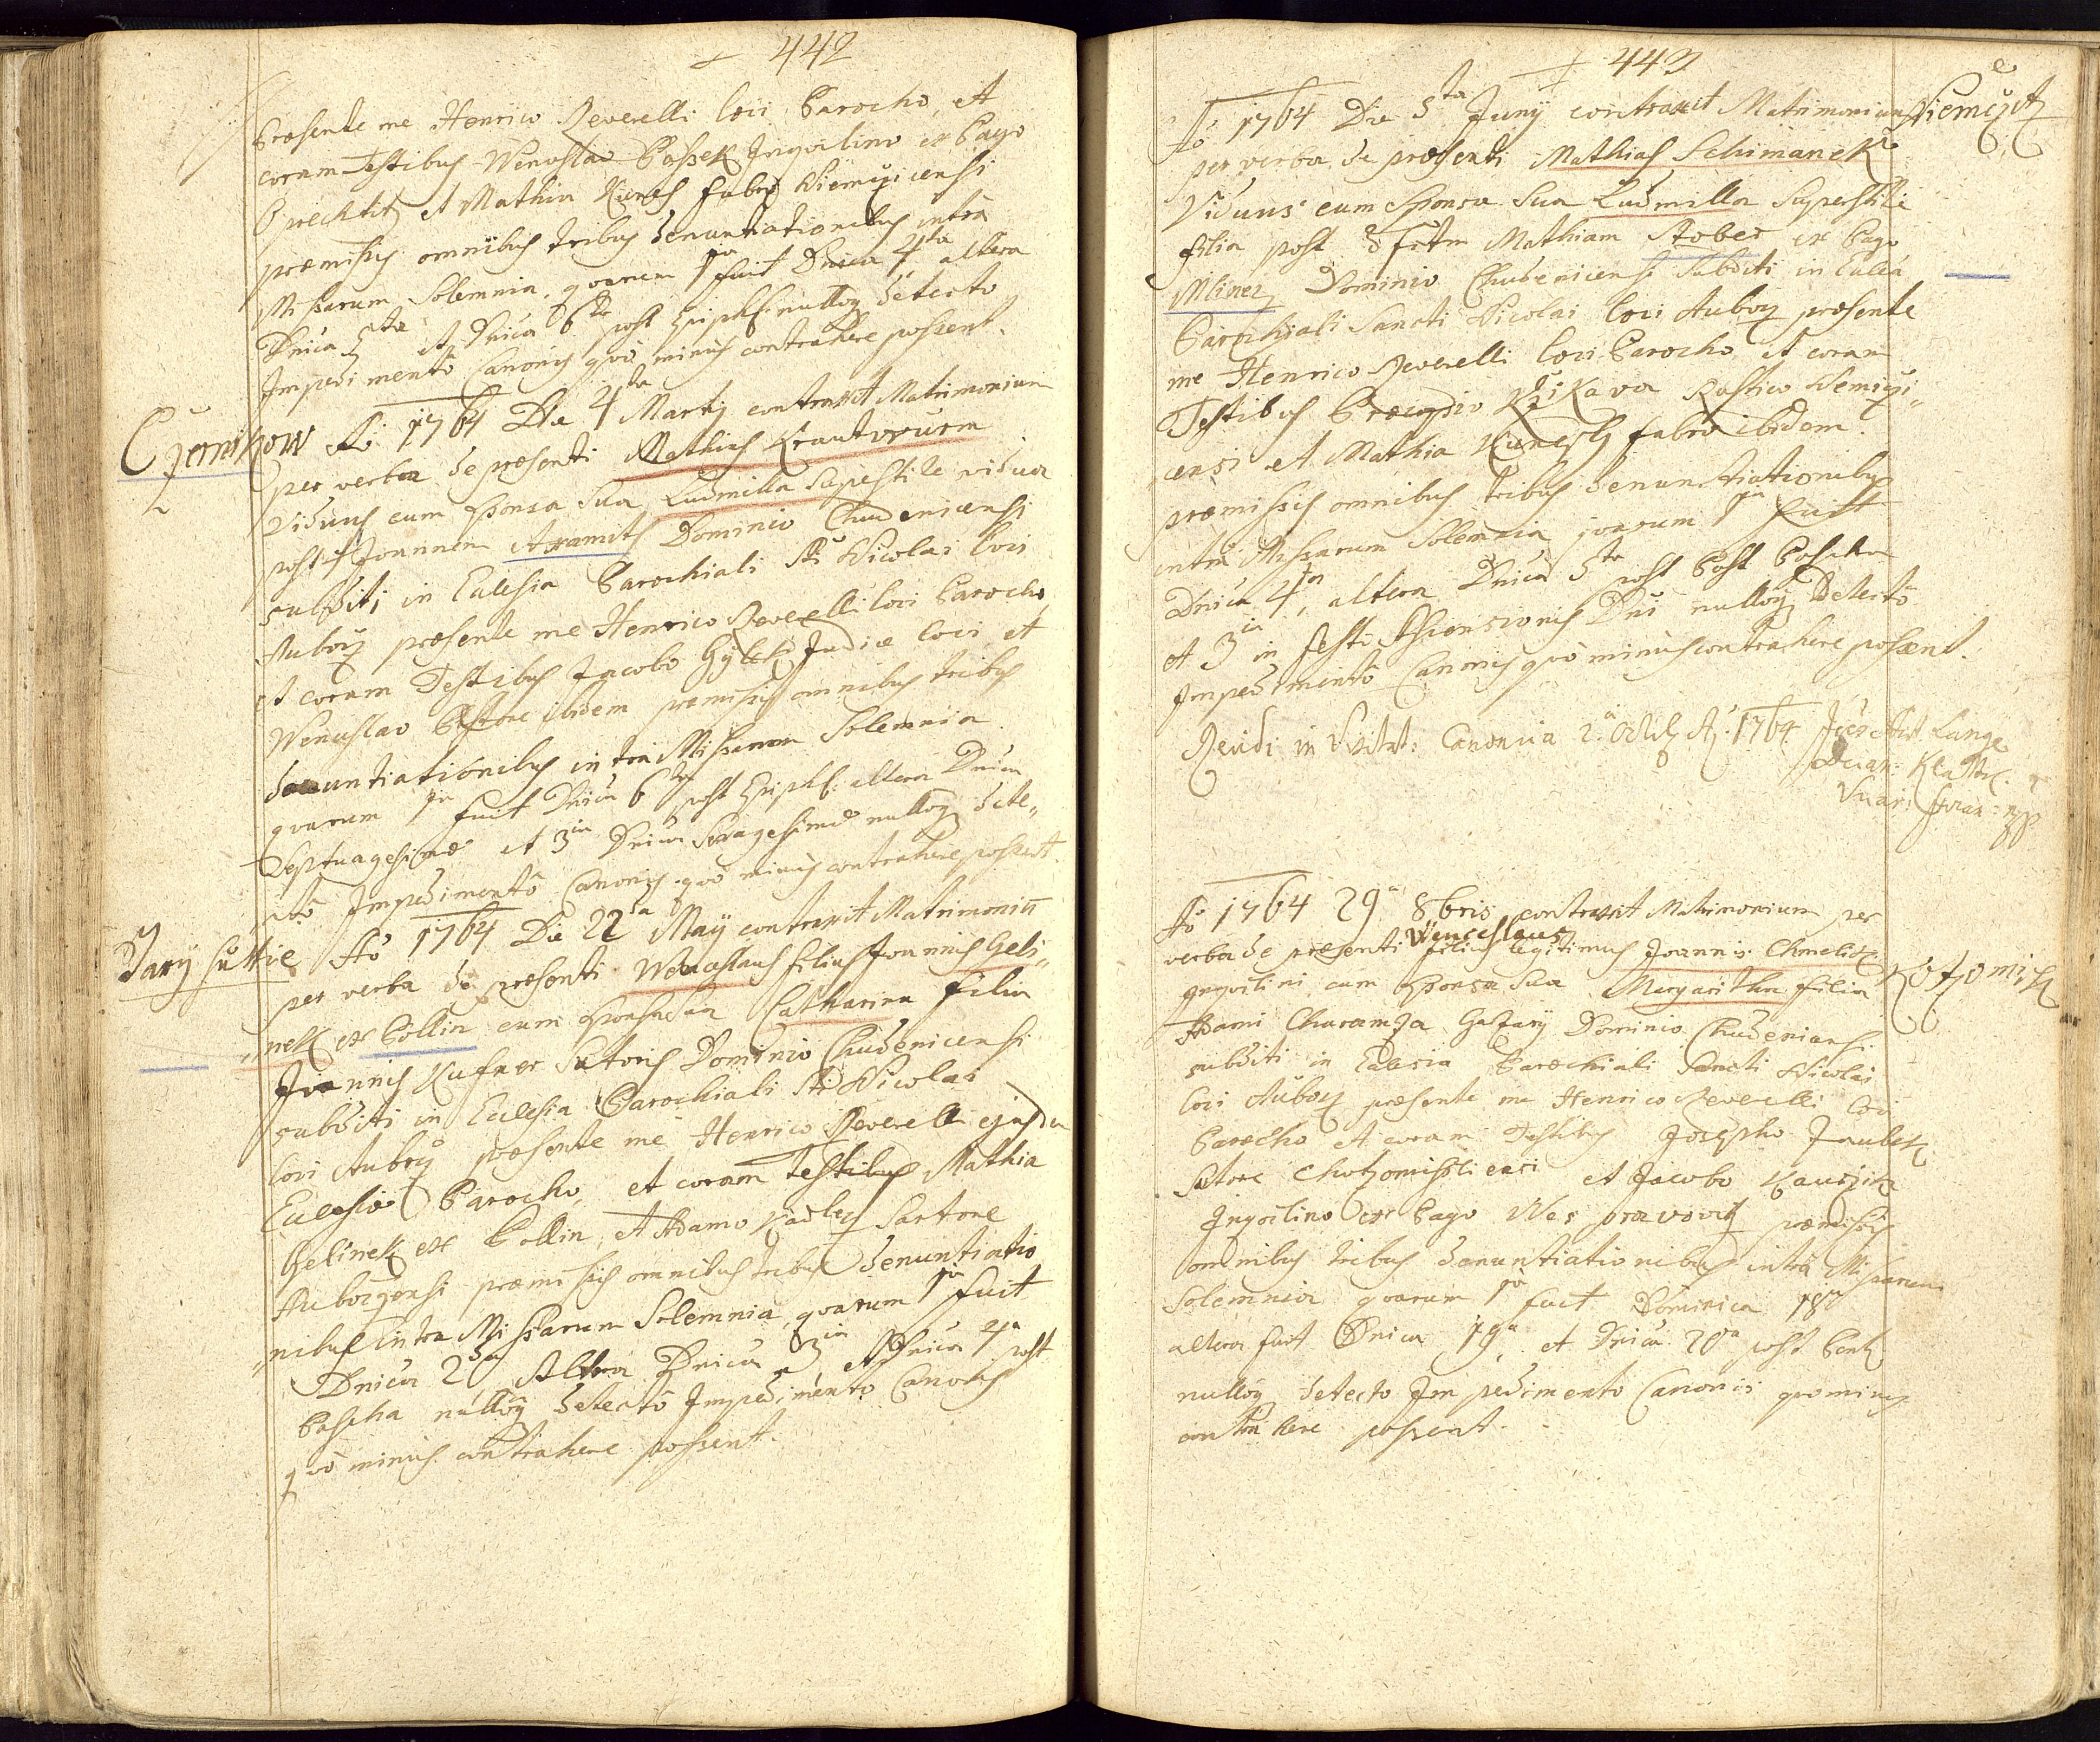 442
Præsente me Henrico Reverelli loci Parocho, et
coram Testibus Wenceslao Passek Inquilino ex Pago
Prechtitz et Mathia Kunes fabro Niemczicensi
præmissis omnibus tribus denuntiationibus intra
Missarum Solemnia, quarum 1ma fuit Dnica 4ta altera
Dnica 5ta et Dnica 6ta post Epiph: nulloq detecto
Impedimentô Canonico quò minus contrahere possent.
Czernikow
Aô 1764 Die 4ta Martÿ contraxit Matrimonium
per verba de præsenti Mathias Krautwurm
Viduus cum Sponsa Sua Ludmilla Superstite vidua
post † Joannem Axamit Dominio Chudenicensi
subditi in Eclesia Parochiali Sti Nicolai loci
Auborz præsente me Henrico Reverelli loci Parocho
et coram Testibus Jacobo Judice loci et
Wenceslao Pastore ibidem præmissis omnibus tribus
denuntiationibus intra Missarum Solemnia
quarum 1ma fuit Dnica 6ta post Epiph: altera Dnica
Septuagesimæ et 3ia Dnica Sexagesimæ nulloq dete„
„ctô Impedimentô Canonico quô minus contrahere possent.
Aô 1764 Die 22da Maÿ contraxit Matrimoniu
per verba de præsenti Wenceslaus filius Joannis Geli„
„nek ex Pollin cum Sponsa Sua Catharina filia
Joannis Kufner Sutoris Dominio Chudenicensi
subditi in Eclesia Parochiali Sti Nicolai
loci Auborz præsente me Henrico Reverelli ejusdem
Eclesiæ Parocho, et coram Testibus Mathia
Gelinek ex Pollin, et Adamo Kadlez Sartore
Auborzensi præmissis omnibus tribus denuntiatio
„nibus intra Missarum Solemnia, quarum 1ma fuit
Dnica 2da Altera Dnica 3ia et Dnica 4a post
Pascha nulloq detectô Impedimento Canonico
quô minus contrahere possent.
443
Aô 1764 Die 5ta Junÿ contraxit Matrimonium
Niemczitz
per verba de præsenti Mathias Schimanek
Viduus cum Sponsa Sua Ludmilla Superstite
filia post Mathiam Stober ex Pago
Mlinez Dominio Chudenicensi subditi in Eclia
Parochiali Sancti Nicolai loci Auborz præsente
me Henrico Reverelli loci Parocho et coram
Testibus Procopio Rustico Nemczi„
„censi et Mathia Kunesch fabro ibidem.
præmissis omnibus tribus denunctiationibus
intra Missarum Solemnia quarum 1ma fuit
Dnica 4ta, altera Dnica 5ta post Post Pascha
et 3ia in festi Ascensionis Dni nulloq Detectô
Impedimentô Canonico quô minus contrahere possent.
Revidi in Visitat: Canonica 2a 8bris Ao. 1764 Lange
Vicar: Klatt.
Vicar: foran: mpp
Aô 1764 29a 8bris contraxit Matrimonium per
verba de præsenti Wenceslaus filius legitimus Joannis Chmelik
Inquilini cum Sponsa Sua Margaritha filia
Adami Charamza Dominio Chudenicensi
subditi in Eclesia Parochiali Sancti Nicolai
loci Auborz præsente me Henrico Reverelli loci
Parocho et coram Testibus Josepho Jaubek
Sutore et Jacobo
Inquilino ex Pago præmissis
omnibus tribus denuntiationibus intra Missarum
Solemnia quarum 1ma fuit Dominica 18a
altera fuit Dnica 19a et Dnica 20a post Pent
nulloq detecto Impedimento Canonico quominus
contrahere possent.